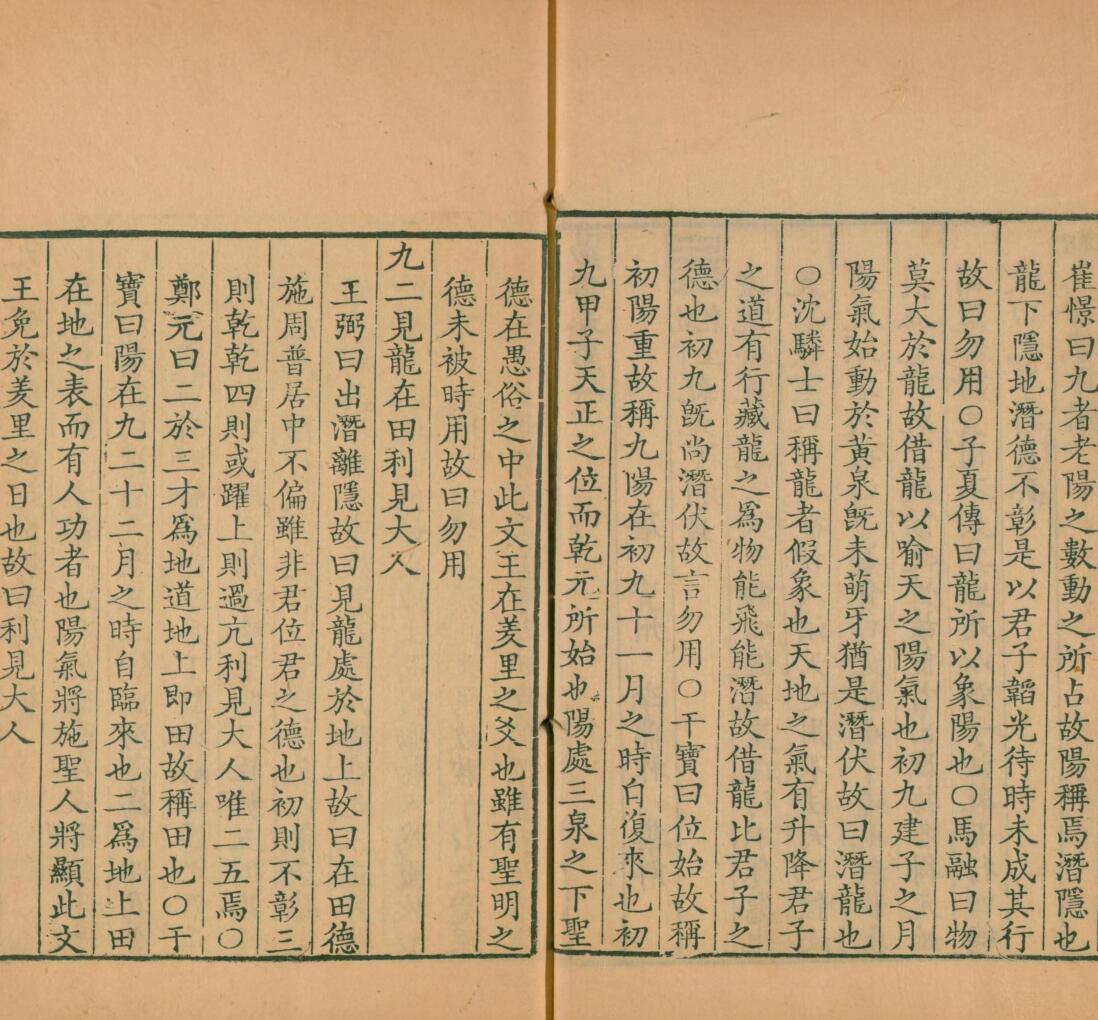 崔憬曰九者老陽之數動之所占故陽稱焉潛隱也
龍下隱地潛德不彰是以君子韜光待時未成其行
故曰勿用○子夏傳曰龍所以象陽也○馬融曰物
莫大於龍故借龍以喻天之陽氣也初九建子之月
陽氣始動於黃泉旣未萌牙猶是潛伏故曰潛龍也
○沈驎士曰稱龍者假象也天地之氣有升降君子
之道有行藏龍之爲物能飛能潛故借龍比君子之
德也初九旣尚潛伏故言勿用○干寶曰位始故稱
初陽重故稱九陽在初九十一月之時自復來也初
九甲子天正之位而乾元所始也陽處三泉之下聖
德在愚俗之中此文王在羑里之爻也雖有聖明之
德未被時用故曰勿用
九二見龍在田利見大人
王弼曰出潛離隱故曰見龍處於地上故曰在田德
施周普居中不偏雖非君位君之德也初則不彰三
則乾乾四則或躍上則過亢利見大人唯二五焉○
鄭元曰二於三才爲地道地上即田故稱田也○干
寶曰陽在九二十二月之時自臨來也二爲地上田
在地之表而有人功者也陽氣將施聖人將顯此文
王免於羑里之日也故曰利見大人